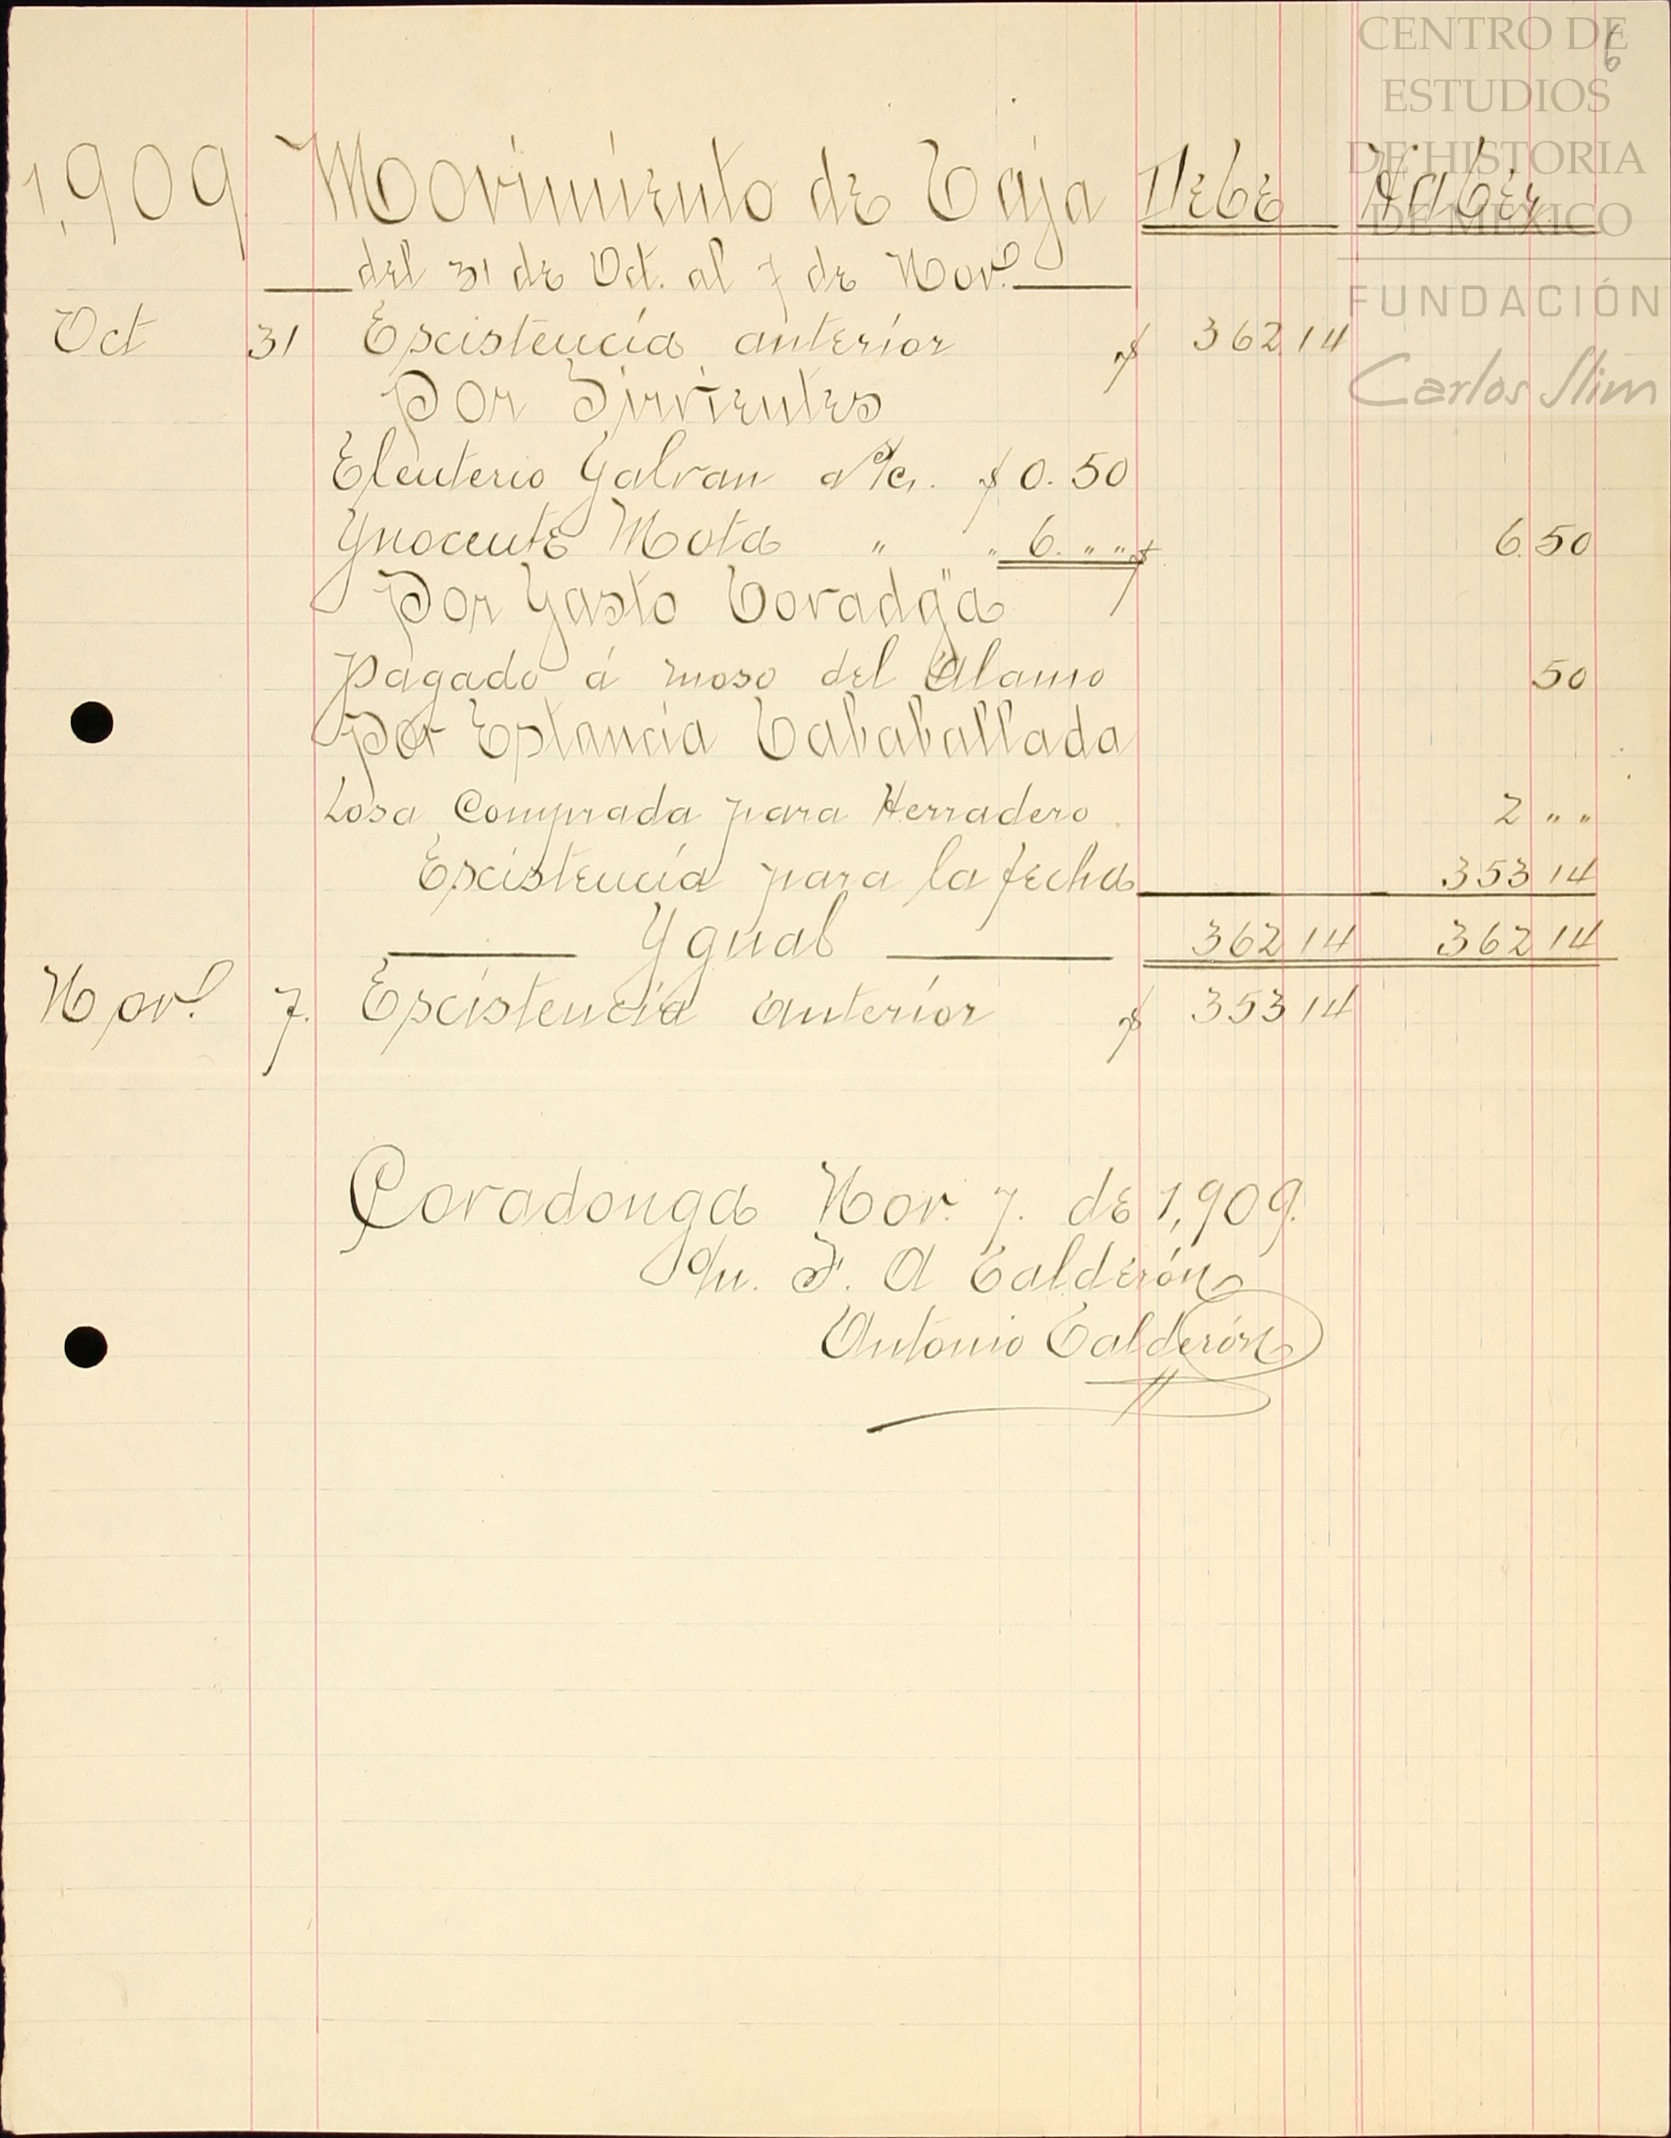 CENTRO DE
ESTUDIOS
DE HISTORIA
DE MÉXICO
FUNDACIÓN
Carlos Slim
6
1,909 Movimiento de Caja Debe Haber
del 31 de Oct. al 7 de Nov.e
Oct 31 Escistencia anterior $ 362 14
Por Sirvientes
Eleuterio Galvan a/c. $ 0.50
Ynocente Mota " " 6. " " $ 6.50
Por Gasto Covadga
Pagado á moso del Alamo 50
Por Estancia Cababallada
Losa Comprada para Herradero. 2 " "
Escistencia para la fecha 353 14
Ygual 362 14 362 14
Nov.e 7. Escistencia anterior $ 353 14
Covadonga Nov. 7. de 1,909.
F. A Calderón
Antonio Calderón